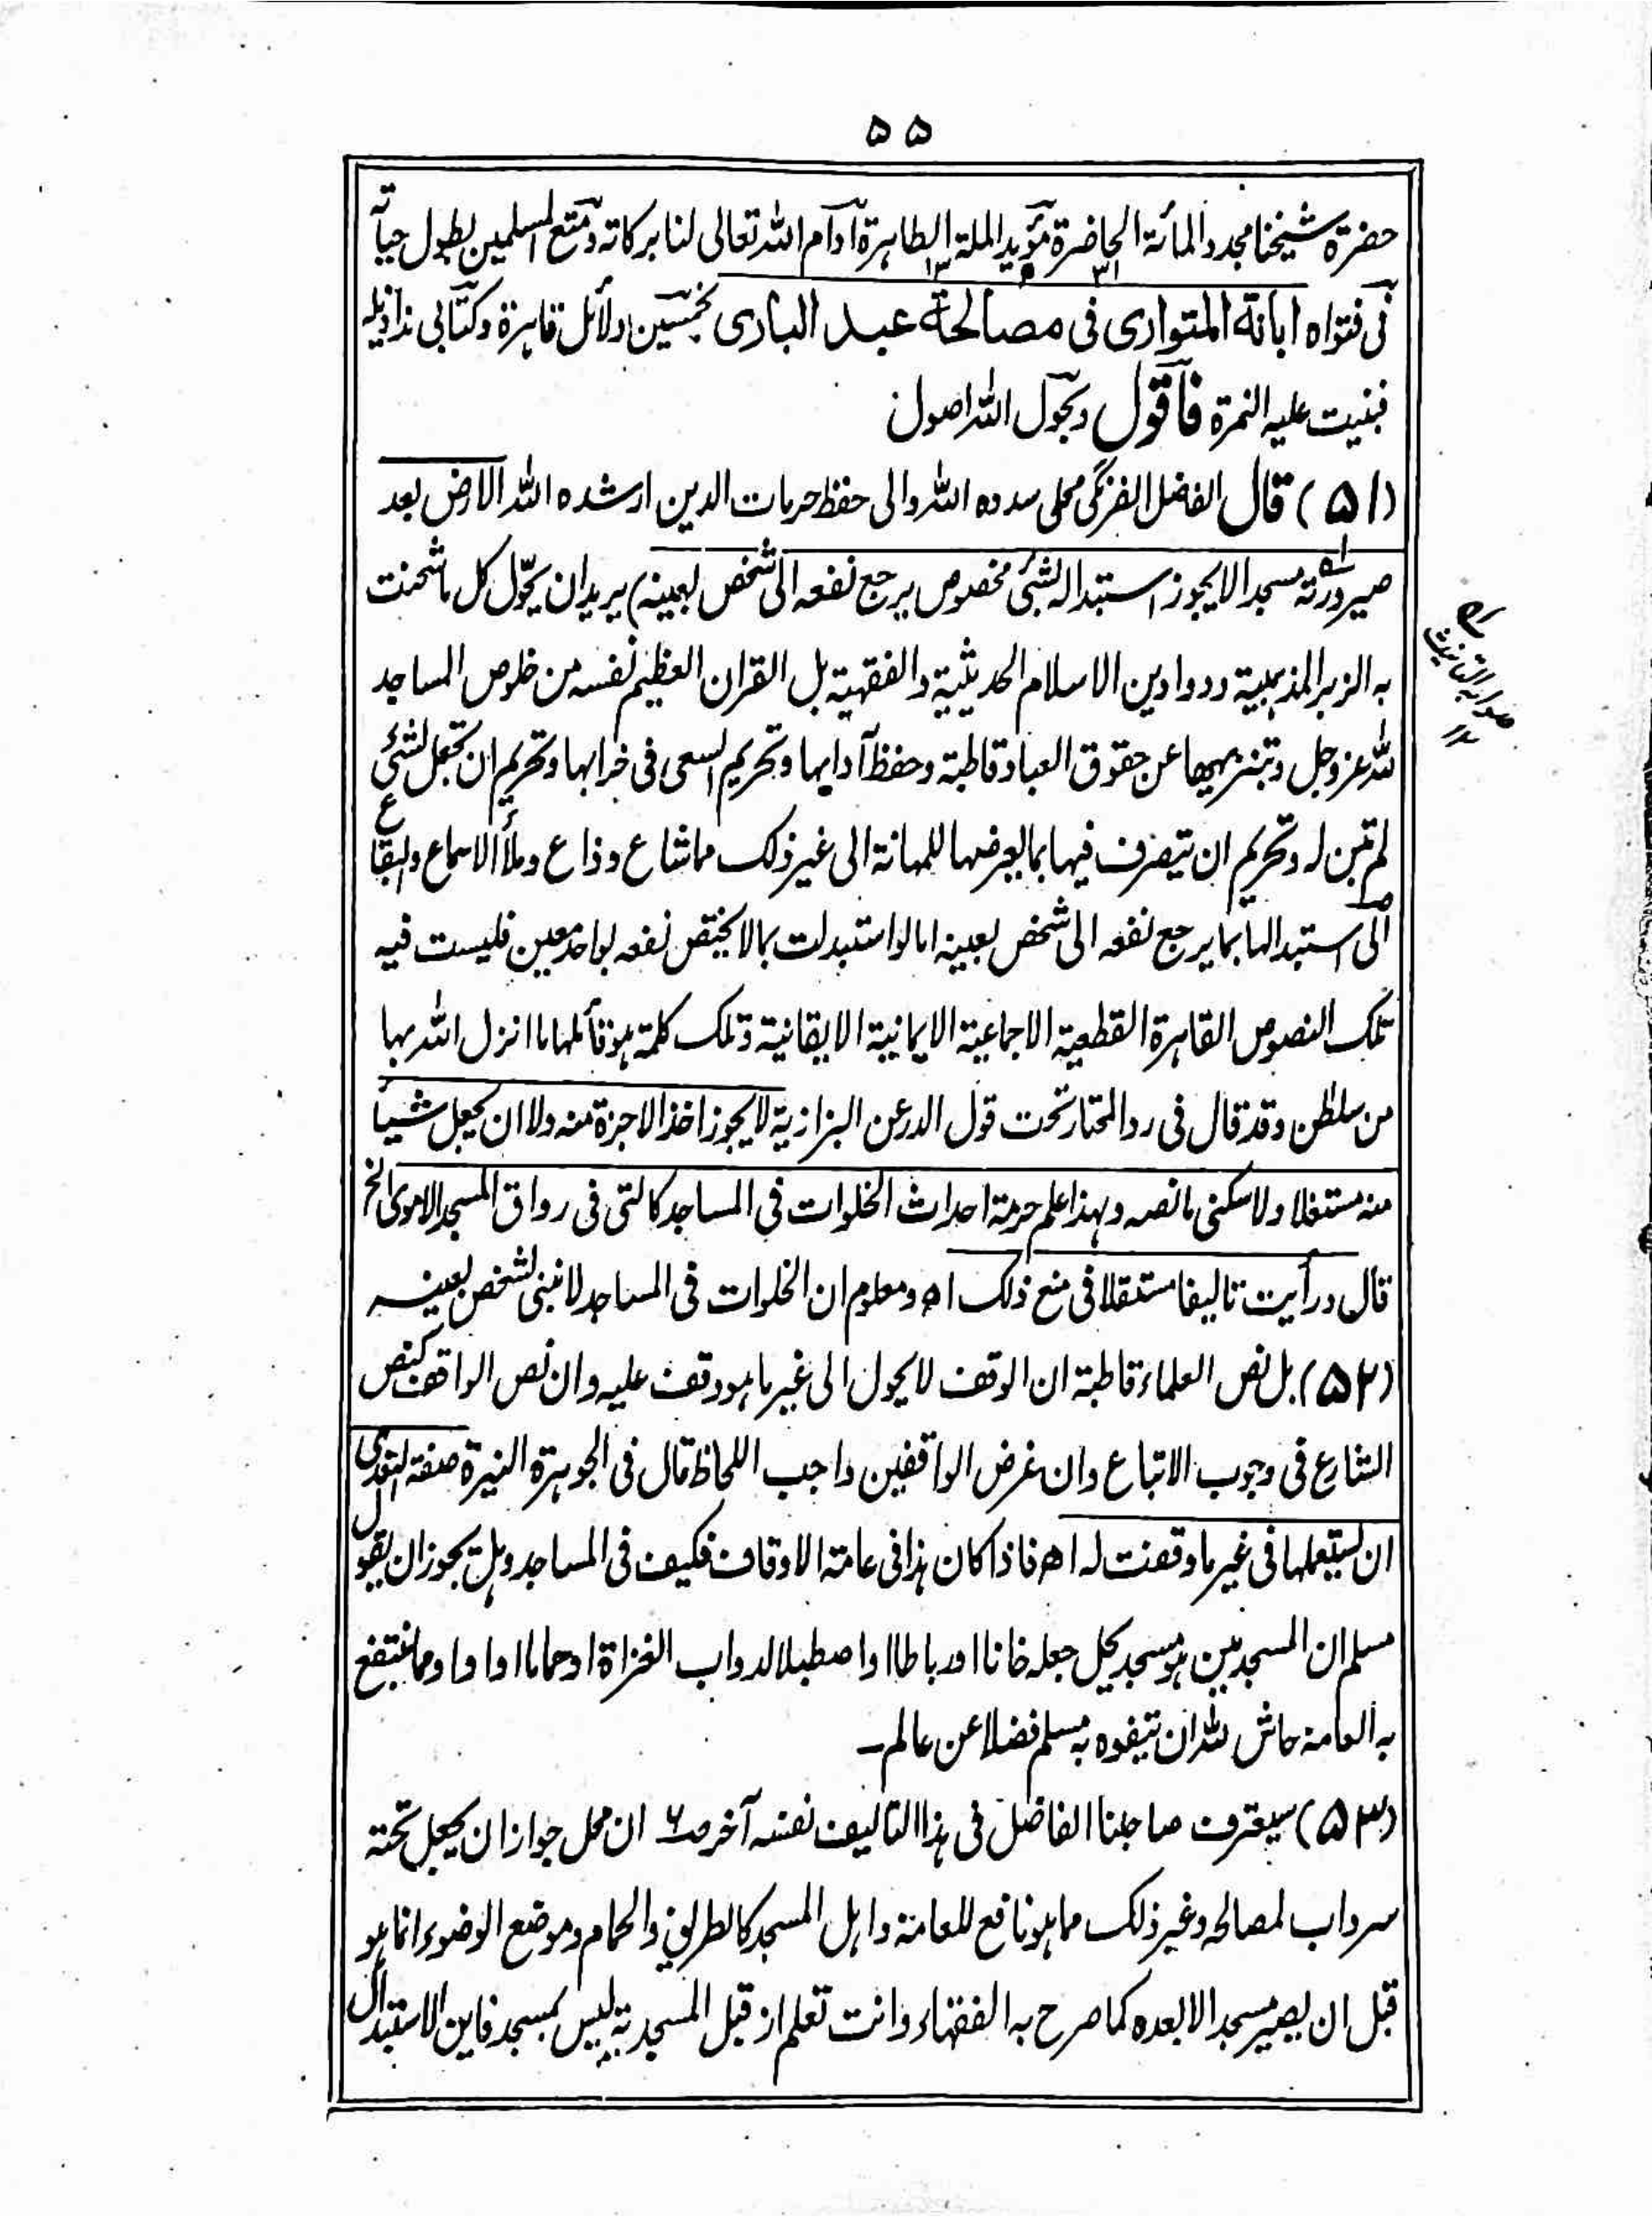 ۵۵
حضرة شيخنا مجدد المأئة الحاضرة مؤيد الملة الطاهرة ادام الله تعالى لنا بركاته ومتع المسلمين بطول حياته
فى فتواه ابانة المتوارى فى مصالحة عبد البارى بخمسين دلائل قاهرة وكتابى هذا ذيله
۱۳ ۳۱
فبنيت عليه النمرة فاقول وبحول الله اصول
(۵۱) قال الفاضل الفرنگى محلى سدده الله والى حفظ حرمات الدين ارشده الله الارض بعد
صيرورته مسجدا لا يجوز استبداله لشئ مخصوص يرجع نفعه الى شخص بعينه) يريد ان يحوّل كل ما شحنت
به الزبر المذهبية ودواوين الاسلام الحديثية والفقهية بل القران العظيم نفسه من خلوص المساجد
لله عز وجل وتنزيهها عن حقوق العباد قاطبة وحفظ آدابها وتحريم السعى فى خرابها وتحريم ان تجعل لشئ
لم تبن له وتحريم ان يتصرف فيها بما يعرضها للمهانة الى غير ذلك مما شاع وذاع وملأ الاسماع والبقاع
الى استبدالها بما يرجع نفعه الى شخص بعينه اما لو استبدلت بما لا يختص نفعه بواحد معين فليست فيه
تلك النصوص القاهرة القطعية الاجماعية الايمانية الايقانية وتلك كلمة هو قائلها ما انزل الله بها
من سلطن وقد قال فى رد المحتار تحت قول الدر عن البزازية لا يجوز اخذ الاجرة منه ولا ان يجعل شيأ
منه مستغلا ولا سكنى ما نصه وبهذا علم حرمة احداث الخلوات فى المساجد كالتى فى رواق المسجد الاموى الخ
قال ورأيت تاليفا مستقلا فى منع ذلك اه ومعلوم ان الخلوات فى المساجد لا تبنى لشخص بعينه
(۵۲) بل نص العلماء قاطبة ان الوقف لا يحول الى غير ما هو وقف عليه وان نص الواقف كنص
الشارع فى وجوب الاتباع وان غرض الواقفين واجب اللحاظ قال فى الجوهرة النيرة صفة التعدى
ان يستعملها فى غير ما وقفت له اه فاذا كان هذا فى عامة الاوقاف فكيف فى المساجد وهل يجوز ان يقول
مسلم ان المسجد مين هو مسجد يحل جعله خانا او رباطا او اصطبلا لدواب الغزاة او حماما او او او مما ينتفع
به العامة حاش لله ان يتفوه به مسلم فضلا عن عالم ـ
(۵۳) سيعترف صاحبنا الفاضل فى هذا التاليف نفسه آخر ص۶ ان محل جواز ان يجعل تحته
سرداب لمصالحه وغير ذلك مما هو نافع للعامة واهل المسجد كالطريق والحمام وموضع الوضوء انما هو
قبل ان يصير مسجدا لا بعده كما صرح به الفقهاء وانت تعلم ان قبل المسجدية ليس بمسجد فاين الاستبدال
صوابه التانيث ۱۲